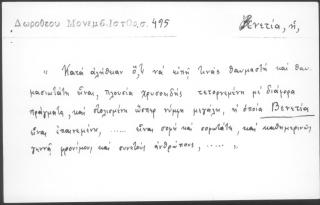 Δωροθέου Μονεμβ. Ιστορ. σ. 495
Βενετία, ἡ,
"Κατὰ ἀλήθειαν ὅ,τι νὰ εἰπῇ τινὰς θαυμαστὴ καὶ θαυ-
μασιωτάτη εἶναι, πλουσία χρυσοειδὴς τετορνεμένη μὲ διάφορα
πράγματα, καὶ στολισμένη ὥσπερ νύμφη μεγάλη, ἡ ὁποία Βενετία
εἶναι ἐπαινεμένη, ..... εἶναι σοφὴ καὶ σοφωτάτη, καὶ καθημερινῶς
γεννᾷ φρονίμους καὶ συνετοὺς ἀνθρώπους, ..... ",